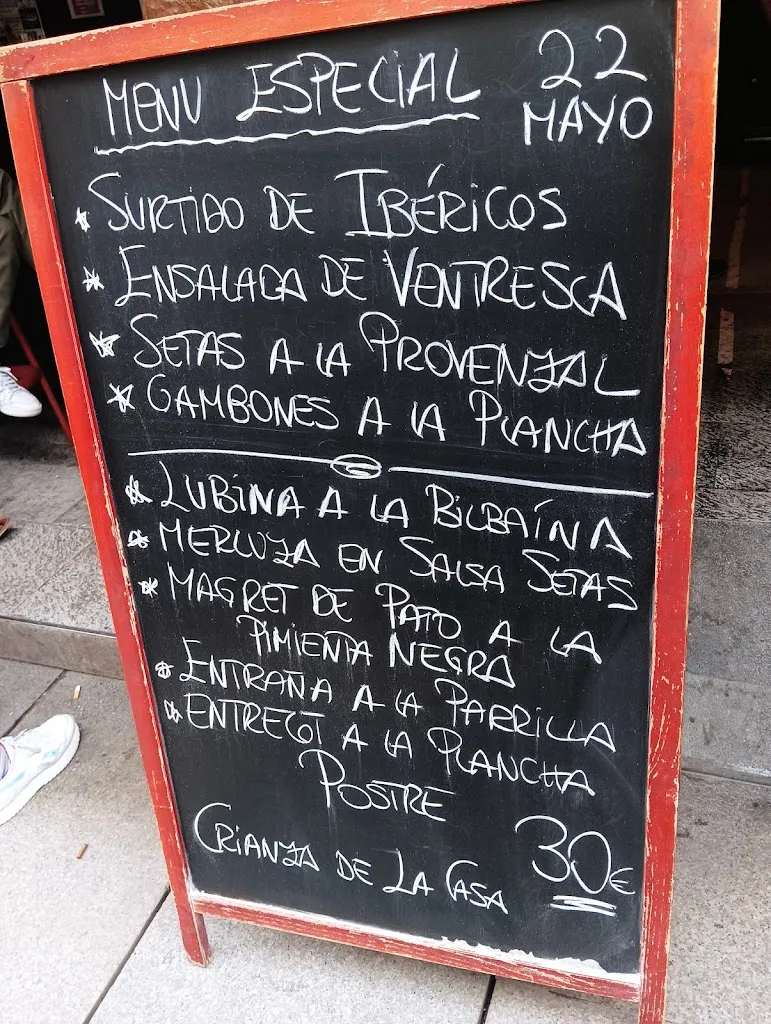 MENU ESPECIAL 22 MAYO
* SURTIDO DE IBÉRICOS
* ENSALADA DE VENTRESCA
* SETAS A LA PROVENZAL
* GAMBONES A LA PLANCHA
* LUBINA A LA BILBAÍNA
* MERLUZA EN SALSA SETAS
* MAGRET DE PATO A LA
PIMIENTA NEGRA
* ENTRAÑA A LA PARRILLA
* ENTRECOT A LA PLANCHA
POSTRE
CRIANZA DE LA CASA 30€